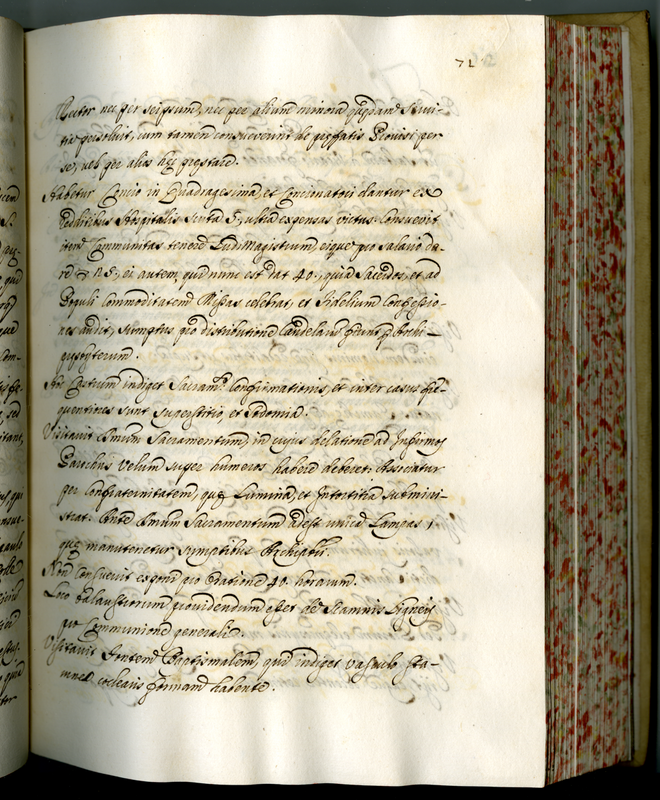 72
Rector nec per seipsum, nec per alium minora quædam servi-
tia persolvit, cum tamen consueverint de præfatis Provisi per
se, vel per alios hæc præstare.
Habetur Concio in Quadragesima, et Concionatori dantur ex
redditibus Hospitalis scuta 5, ultra expensas victus. Consuevit
item Communitas tenere Ludimagistrum, eique pro salario da-
re 25, ei autem, qui nunc est dat 40, quia Sacerdos, et ad
Populi Commoditatem Missas celebrat, et Fidelium Confessio-
nes audit, sumptus pro distributione Candelarum fiunt p. Archi-
presbyterum.
Hoc Castrum indiget Sacram.to Confirmationis, et inter casus fre-
quentiores sunt superstitio, et
Visitavit Smum Sacramentum, in cujus delatione ad Infirmos
Parochus Velum super humeros habere deberet. Associatur
per Confraternitatem, quæ Lumina, et Intortitia submini-
strat. Ante Smum Sacramentum adest unica Lampas,
quæ manutenetur sumptibus Archipbri.
Non Consuevit exponi pro Oratione 40. horarum.
Loco balaustiorum providendum esset de scamnis Ligneis
pro Communione generali.
Visitavit Fontem Baptismalem, qui indiget vasculo sta-
mneo coclearis formam habente.